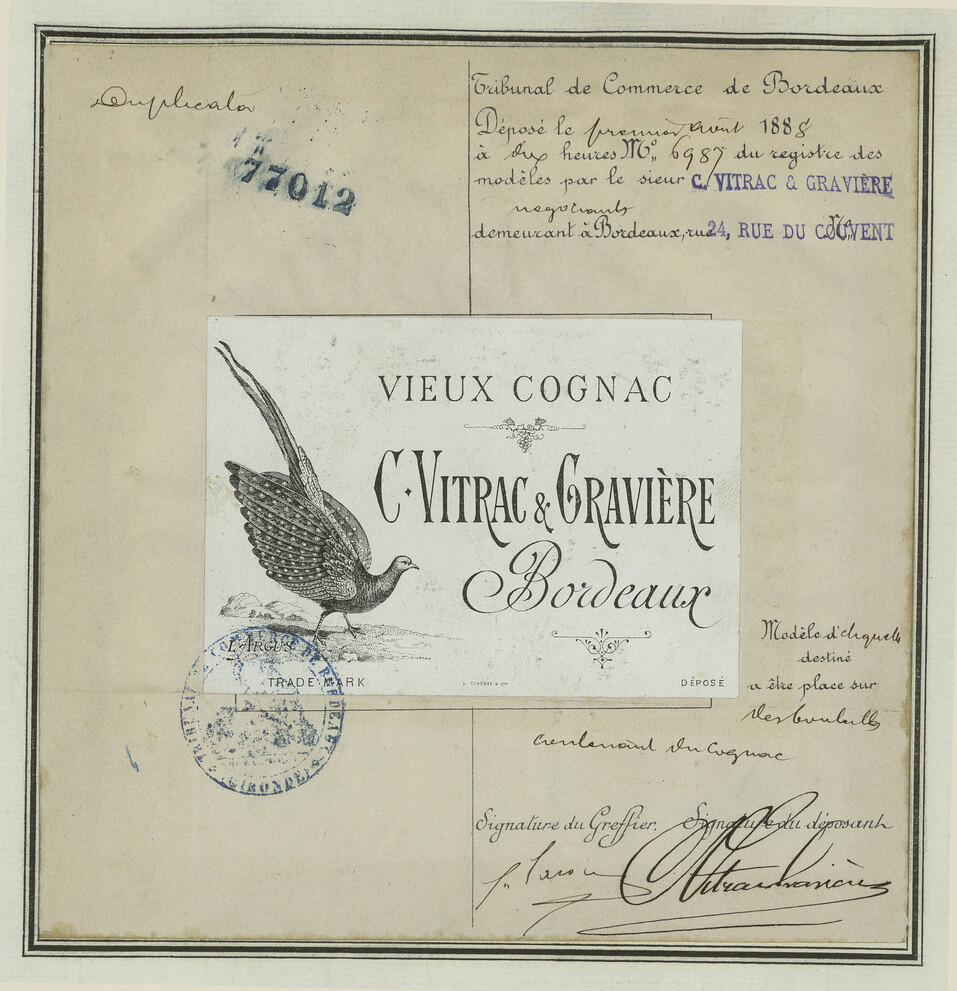 Duplicata
77012
Tribunal de Commerce de Bordeaux
Déposé le premier Août 1888
à dix heures No 6987 du registre des
modèles par le sieur C. VITRAC & GRAVIÈRE
négociants
demeurant à Bordeaux, rue 24, RUE DU COUVENT No
VIEUX COGNAC
C. VITRAC & GRAVIÈRE
Bordeaux
L'ARGUS
TRADE MARK
DÉPOSÉ
TRIBUNAL DE COMMERCE DE BORDEAUX
(GIRONDE)
Modèle d'étiquette
destiné
a être place sur
des bouteilles
contenant du Cognac
Signature du Greffier. Signature du déposant